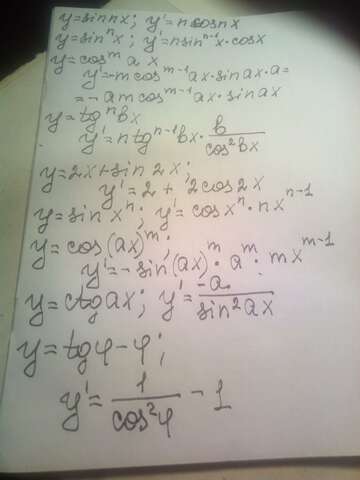 y=sin nx; y'=n cos nx
y=sinⁿx; y'=n sinⁿ⁻¹x·cosx
y=cosᵐ a x
y'=-m cosᵐ⁻¹ax·sin ax·a=
=-am cosᵐ⁻¹ax·sin ax
y=tgⁿbx
y'=n tgⁿ⁻¹bx·b/cos²bx
y=2x+sin 2x;
y'=2+2cos2x
y=sin xⁿ; y'=cos xⁿ·nxⁿ⁻¹
y=cos(ax)ᵐ;
y'=-sin(ax)ᵐ·aᵐ·mxᵐ⁻¹
y=ctg ax; y'=-a/sin²ax
y=tgφ-φ;
y'=1/cos²φ-1